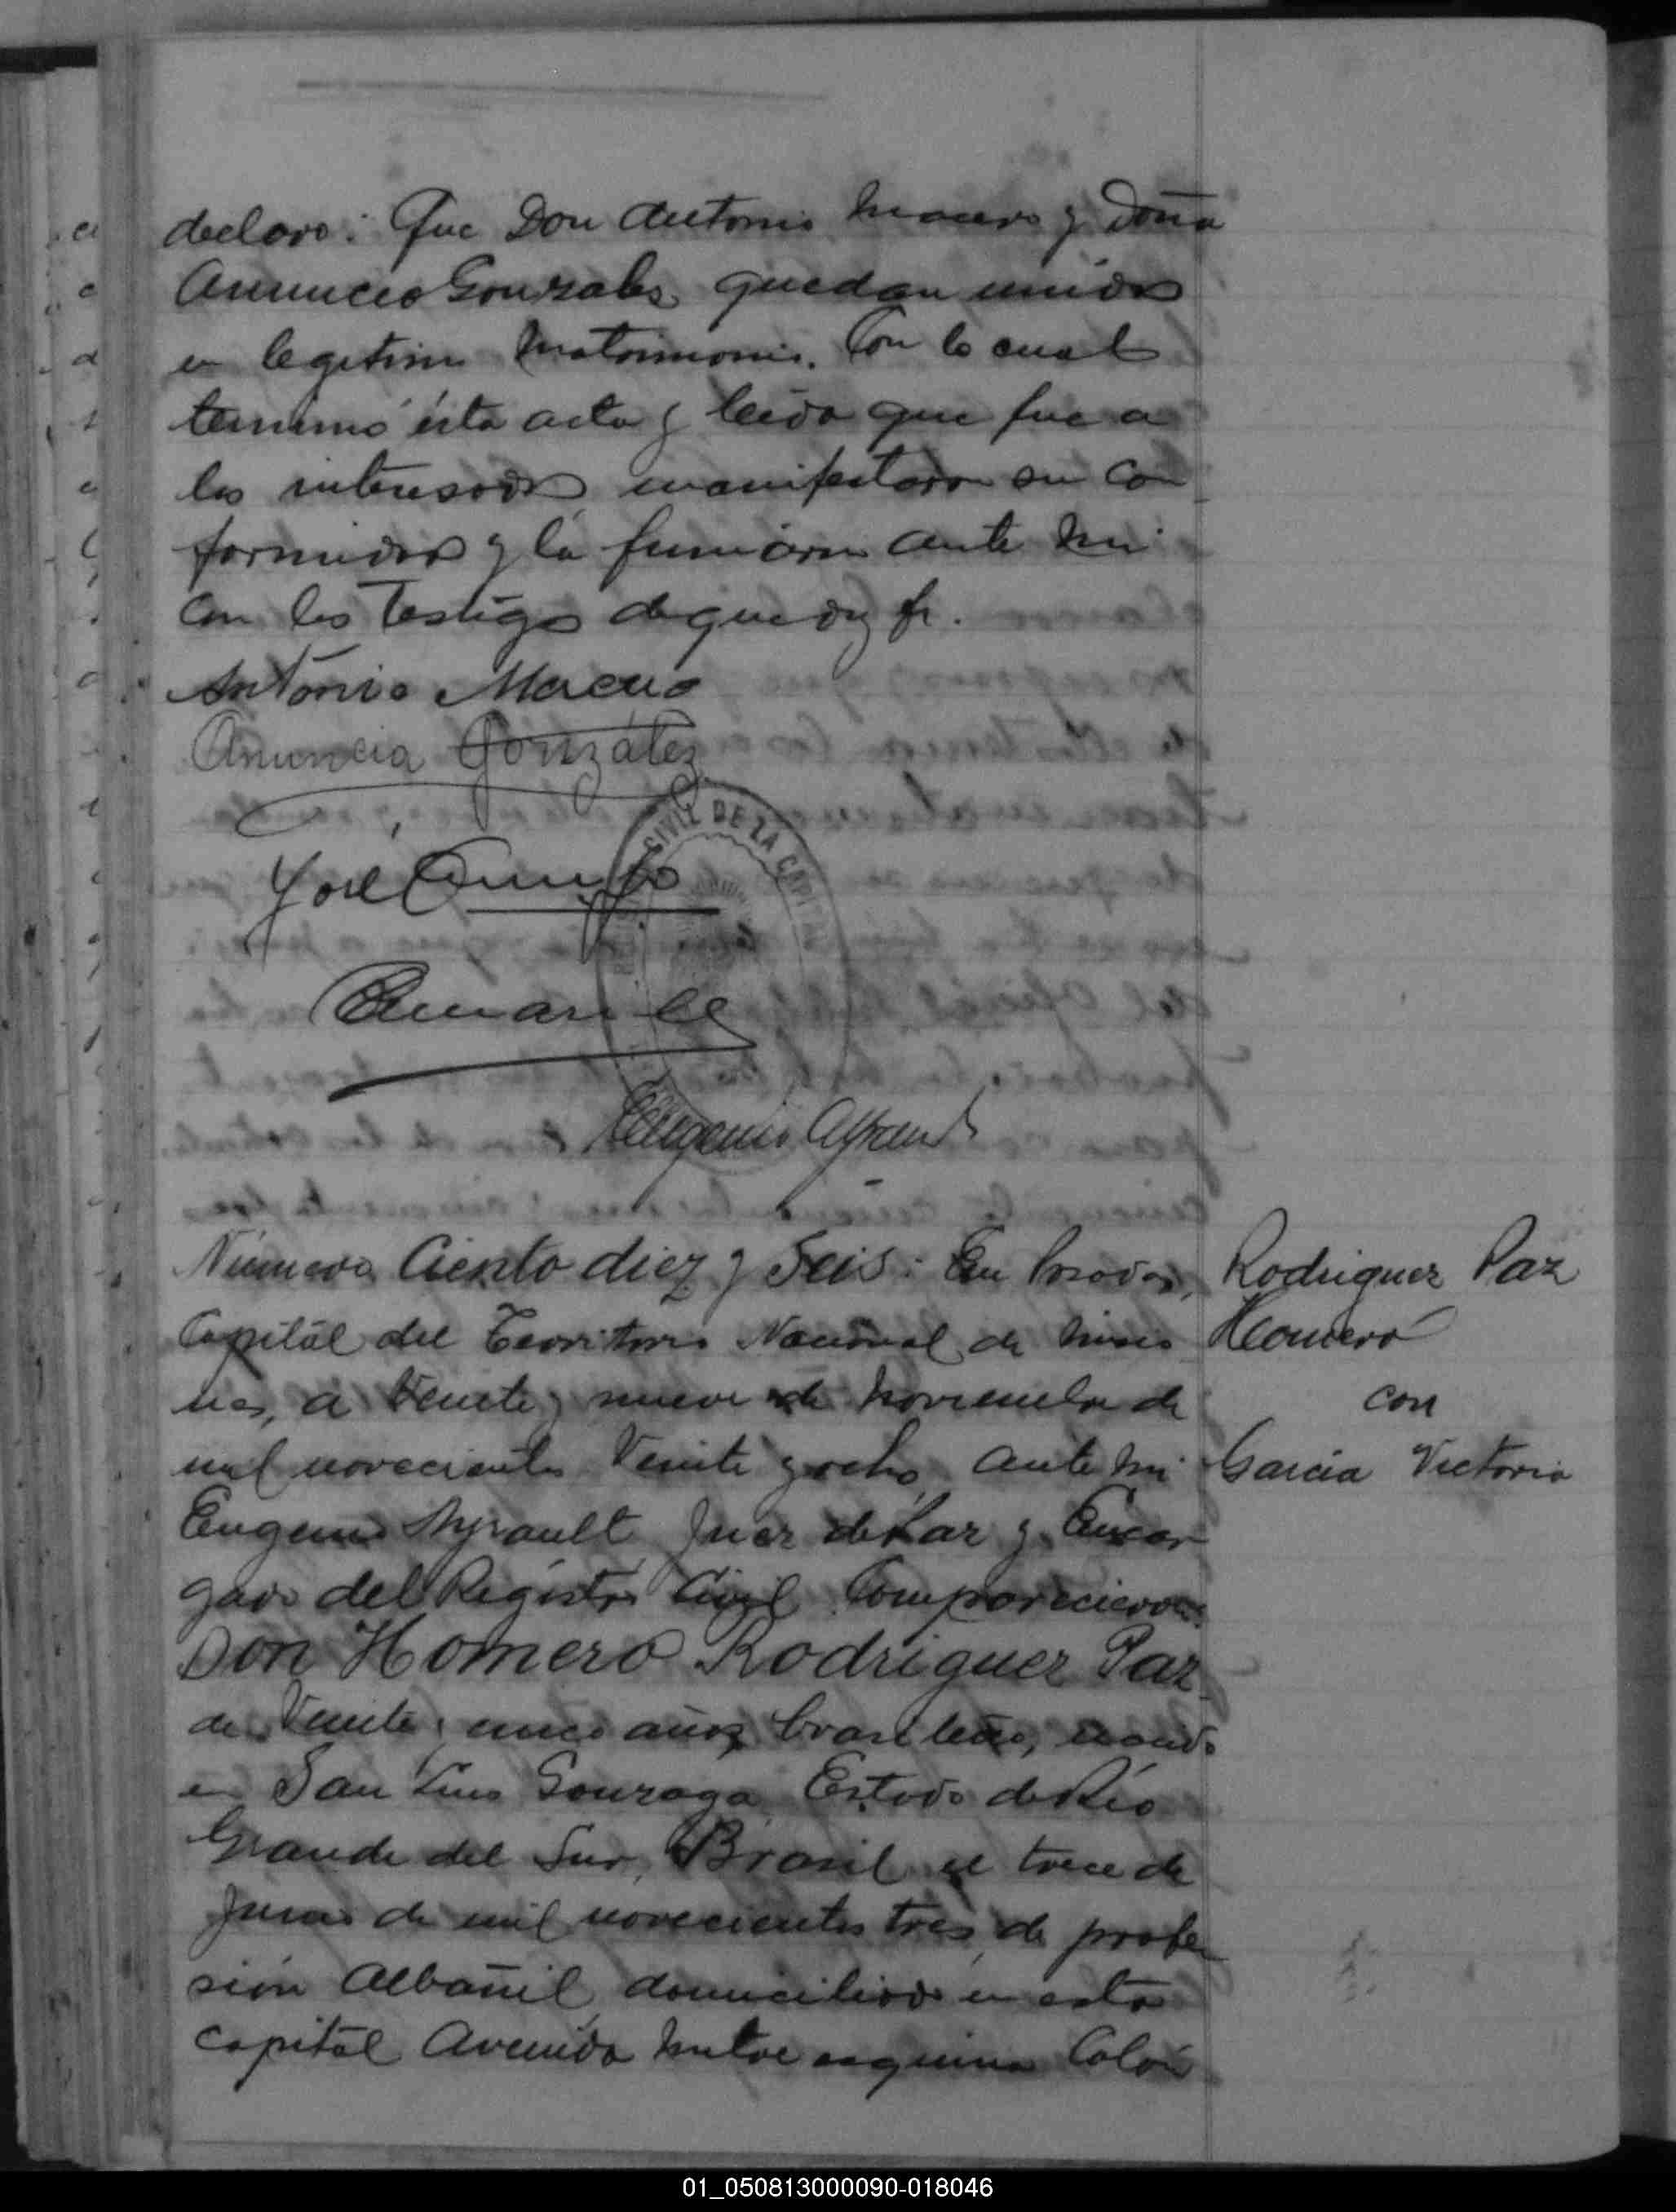 declaro: Que Don Antonio Macero y Doña
Anuncia Gonzales quedan unidos
en legitimo Matrimonio. Con lo cual
terminó ésta acta y leída que fue a
los interesados manifestaron su con
formidad y la firmaron ante mi
con los Testigos de que doy fe.
Antonio
Anuncia González
José
CIVIL DE LA CAPITAL
Eugenio Ayrault
Número Ciento diez y Seis: En Posadas,
Capital del Territorio Nacional de Misio
nes, a Veinte y nueve de Noviembre de
mil novecientos Veinte y ocho, ante mi
Eugenio Ayrault Juez de Paz y Encar
gado del Registro Civil Comparecieron:
Don Homero Rodriguez Paz
de Veinte y cinco años, brasileño, nacido
en San Luis Gonzaga Estado de Río
Grande del Sur, Brasil el trece de
Junio de mil novecientos tres, de profe
sión Albañil, domiciliado en esta
capital Avenida Mitre esquina Colón
Rodriguez Paz
Homero
con
Garcia Victoria
01_050813000090-018046